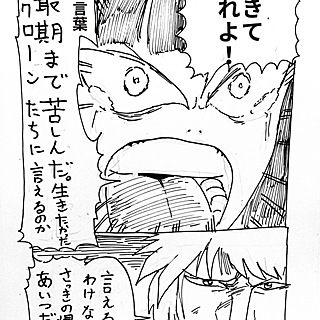 きて
れよ！
言葉
最期まで苦しんだ。生きたかった
クローンたちに言えるのか
言える
わけな
さっきの
あいつだ